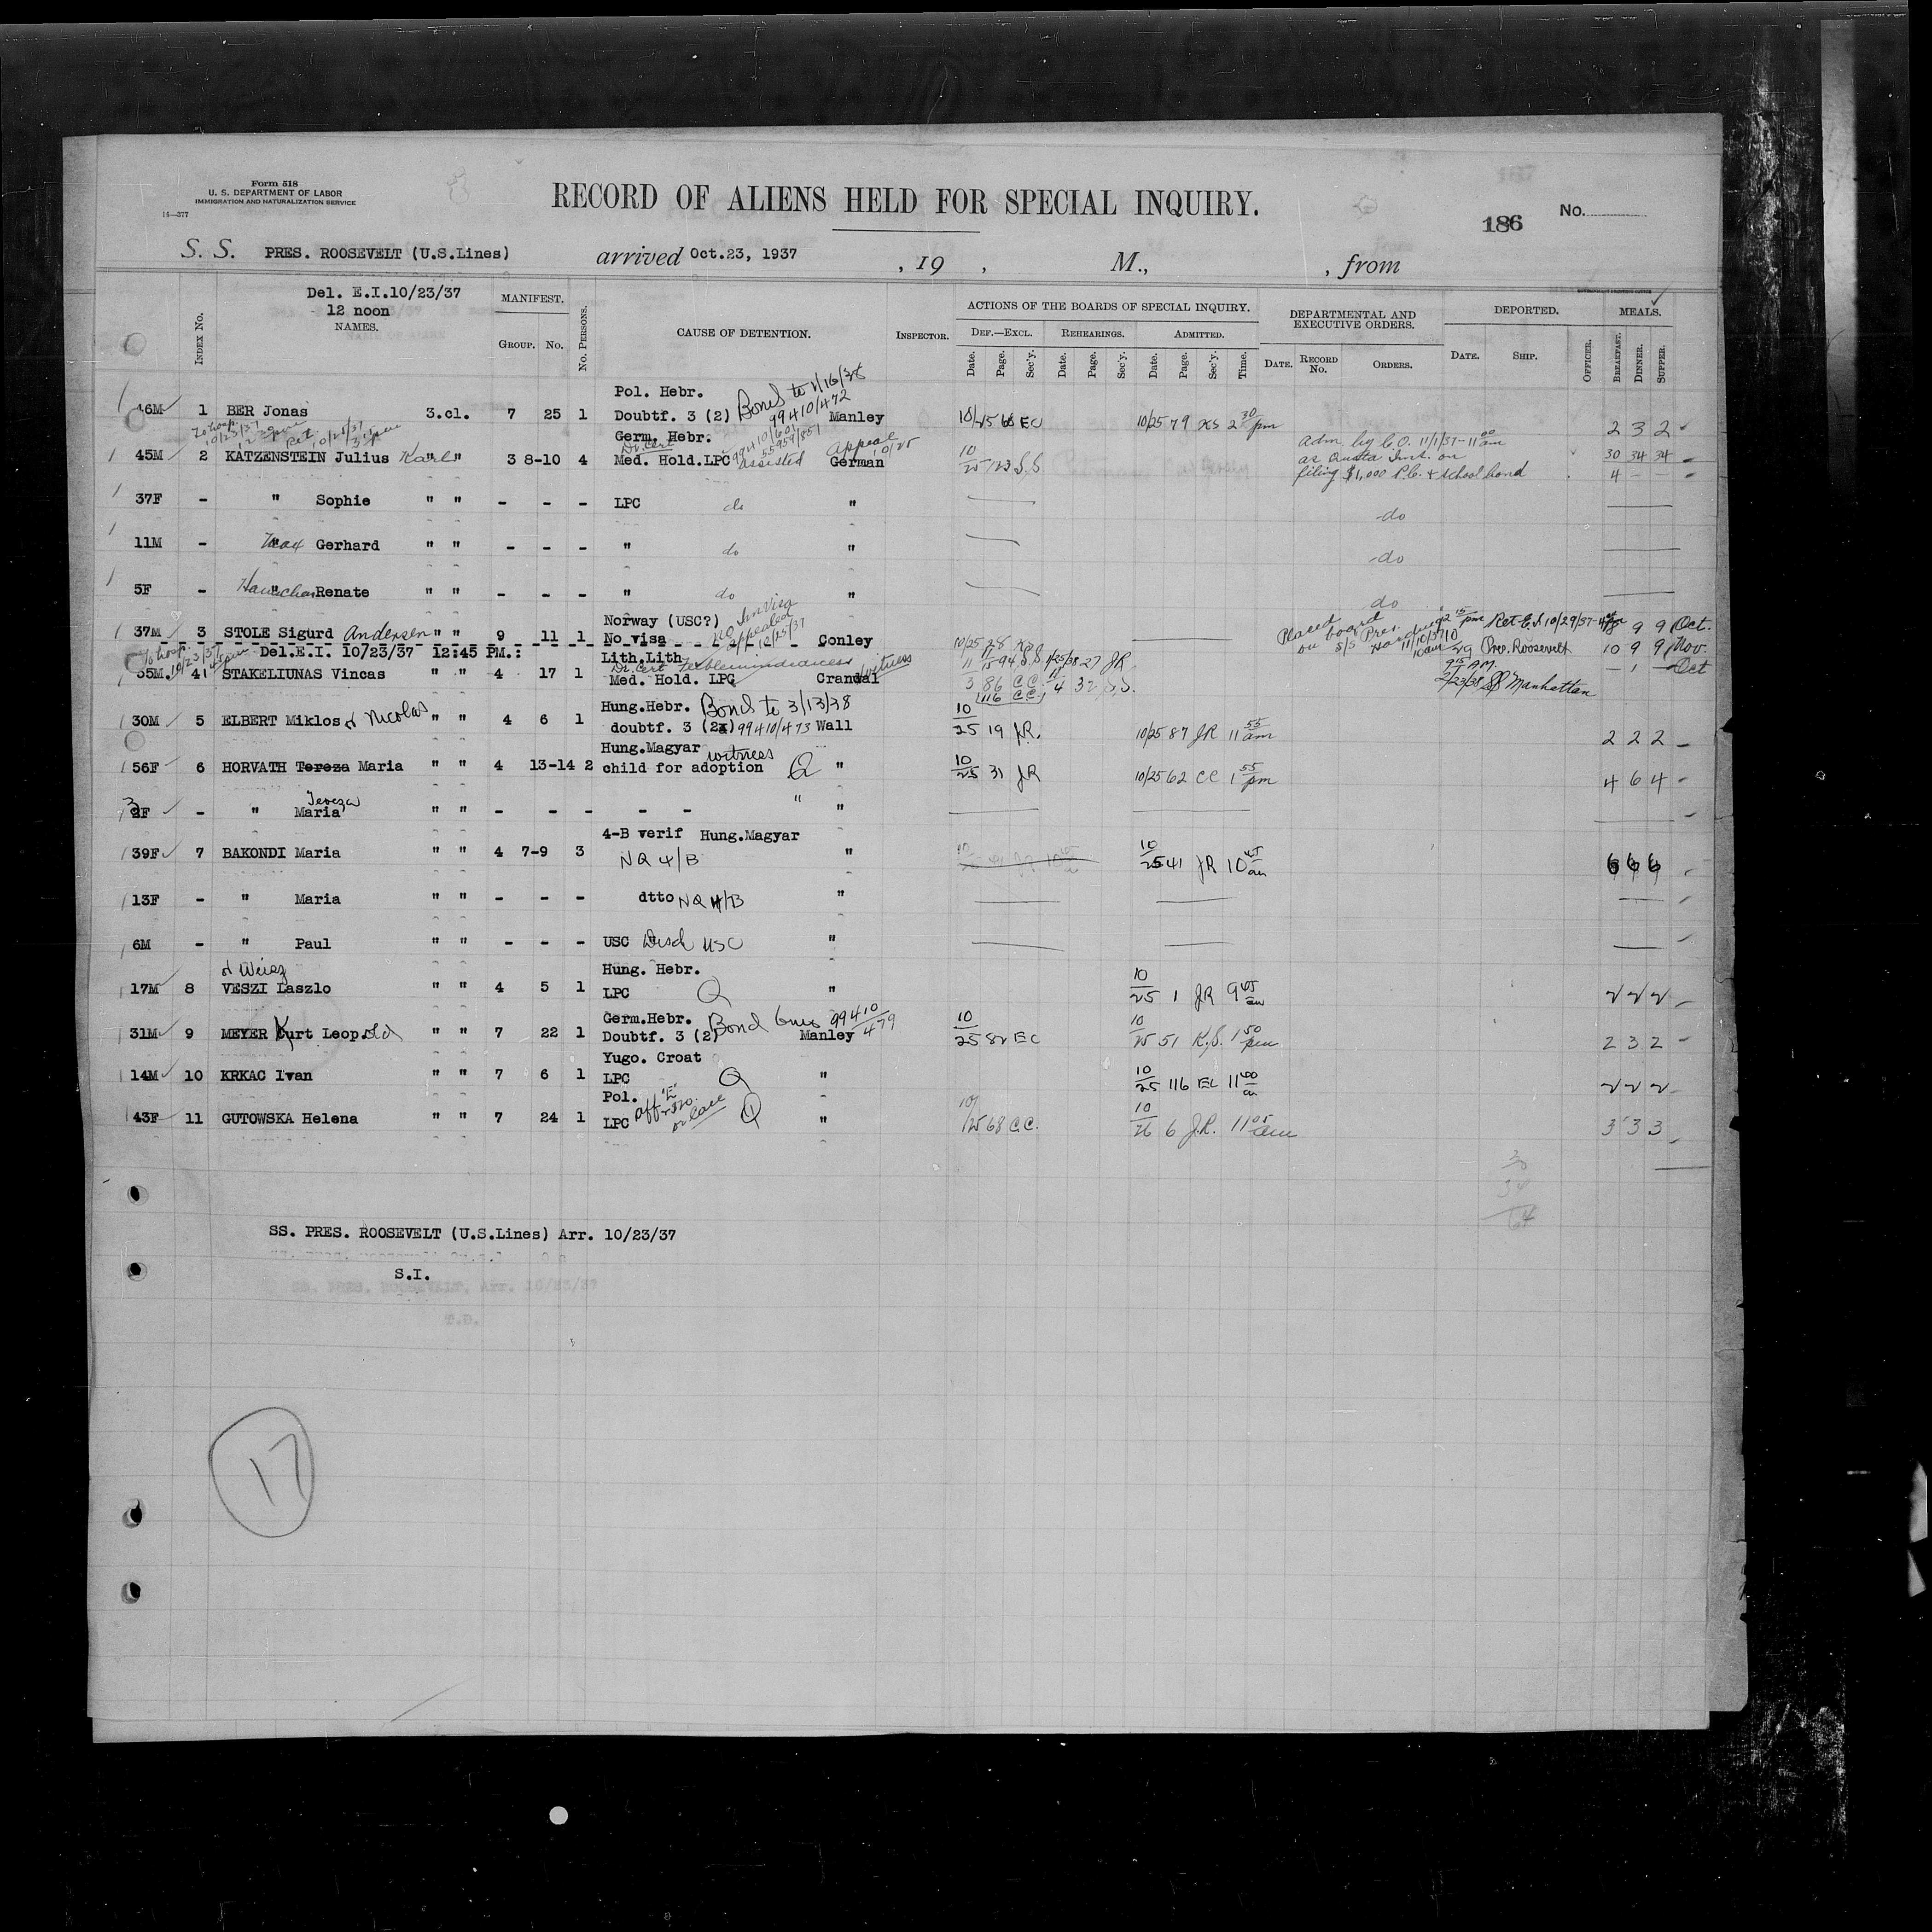 Form 518
U. S. DEPARTMENT OF LABOR
IMMIGRATION AND NATURALIZATION SERVICE
14—377
RECORD OF ALIENS HELD FOR SPECIAL INQUIRY.
186 No.
S. S. PRES. ROOSEVELT (U.S.Lines) arrived Oct.23, 1937 , 19 , M., , from
Del. E.I.10/23/37
12 noon
INDEX No. NAMES. MANIFEST. GROUP. No. No. PERSONS. CAUSE OF DETENTION. INSPECTOR. ACTIONS OF THE BOARDS OF SPECIAL INQUIRY. DEF.—EXCL. REHEARINGS. ADMITTED. DEPARTMENTAL AND EXECUTIVE ORDERS. DEPORTED. MEALS.
Date. Page. Sec'y. Date. Page. Sec'y. Date. Page. Sec'y. Time. DATE. RECORD No. ORDERS. DATE. SHIP. OFFICER. BREAKFAST. DINNER. SUPPER.
Pol. Hebr. Bond to 1/16/38
46M 1 BER Jonas 3.cl. 7 25 1 Doubtf. 3 (2) 99410/472 Manley 10/25 EC 10/25 79 KS 2 30 pm 2 3 2
To hosp. 10/23/37 Ret. 10/25/37
Germ. Hebr. Dr. Cert 99410/601 55959/851 Appeal 10/25
45M 2 KATZENSTEIN Julius Karl " " 3 8-10 4 Med. Hold.LPC assisted German 10/25 123 S.S. adm by C.O. 11/1/37-11 00 am 30 34 34
as Quota Imt. on
filing $1,000 P.C. & school bond 4 - -
37F - " Sophie " " - - - LPC do " do
11M - " Max Gerhard " " - - - " do " do
5F - " Renate " " - - - " do " do
Norway (USC?) No Im Visa appealed
37M 3 STOLE Sigurd Andersen " " 9 11 1 No visa Conley 10/25 28 KS Placed on board S/S Pres. Harding Ret E.I. 10/29/37 9 9 Oct.
To hosp. 10/23/37 Del.E.I. 10/23/37 12:45 PM.: 11/10/37 10 am Pres. Roosevelt 10 9 9 Nov.
Lith.Lith Dr. Cert Feeblemindedness witness
35M. 4 STAKELIUNAS Vincas " " 4 17 1 Med. Hold. LPC Crandal 11/3 86 C.C. 11/4 32 S.S. 2/23/38 SS Manhattan - 1 - Oct
116 C.C.
Hung.Hebr. Bond to 3/13/38
30M 5 ELBERT Miklos or Nicolas " " 4 6 1 doubtf. 3 (2) 99410/473 Wall 10/25 19 J.R. 10/25 87 JR 11 55 am 2 2 2
Hung.Magyar witness
56F 6 HORVATH Tereza Maria " " 4 13-14 2 child for adoption Q " 10/25 31 JR 10/25 62 CC 1 55 pm 4 6 4
3F - " Maria Tereza " " - - - - - " "
4-B verif Hung.Magyar
39F 7 BAKONDI Maria " " 4 7-9 3 NQ 4/B " 10/25 41 JR 10 45 am 6 6 6
13F - " Maria " " - - - dtto NQ 4/B "
6M - " Paul " " - - - USC Disch USC "
or Weisz Hung. Hebr.
17M 8 VESZI Laszlo " " 4 5 1 LPC Q " 10/25 1 JR 9 45 am 2 2 2
Germ.Hebr. Bond 6ms 99410/479
31M 9 MEYER Kurt Leopold " " 7 22 1 Doubtf. 3 (2) Manley 10/25 82 EC 10/25 51 K.S. 1 50 pm 2 3 2
Yugo. Croat
14M 10 KRKAC Ivan " " 7 6 1 LPC Q " 10/25 116 EC 11 00 am 2 2 2
Pol.
43F 11 GUTOWSKA Helena " " 7 24 1 LPC Q " 10/25 68 C.C. 10/26 6 J.R. 11 05 am 3 3 3
30
34
64
SS. PRES. ROOSEVELT (U.S.Lines) Arr. 10/23/37
S.I.
17